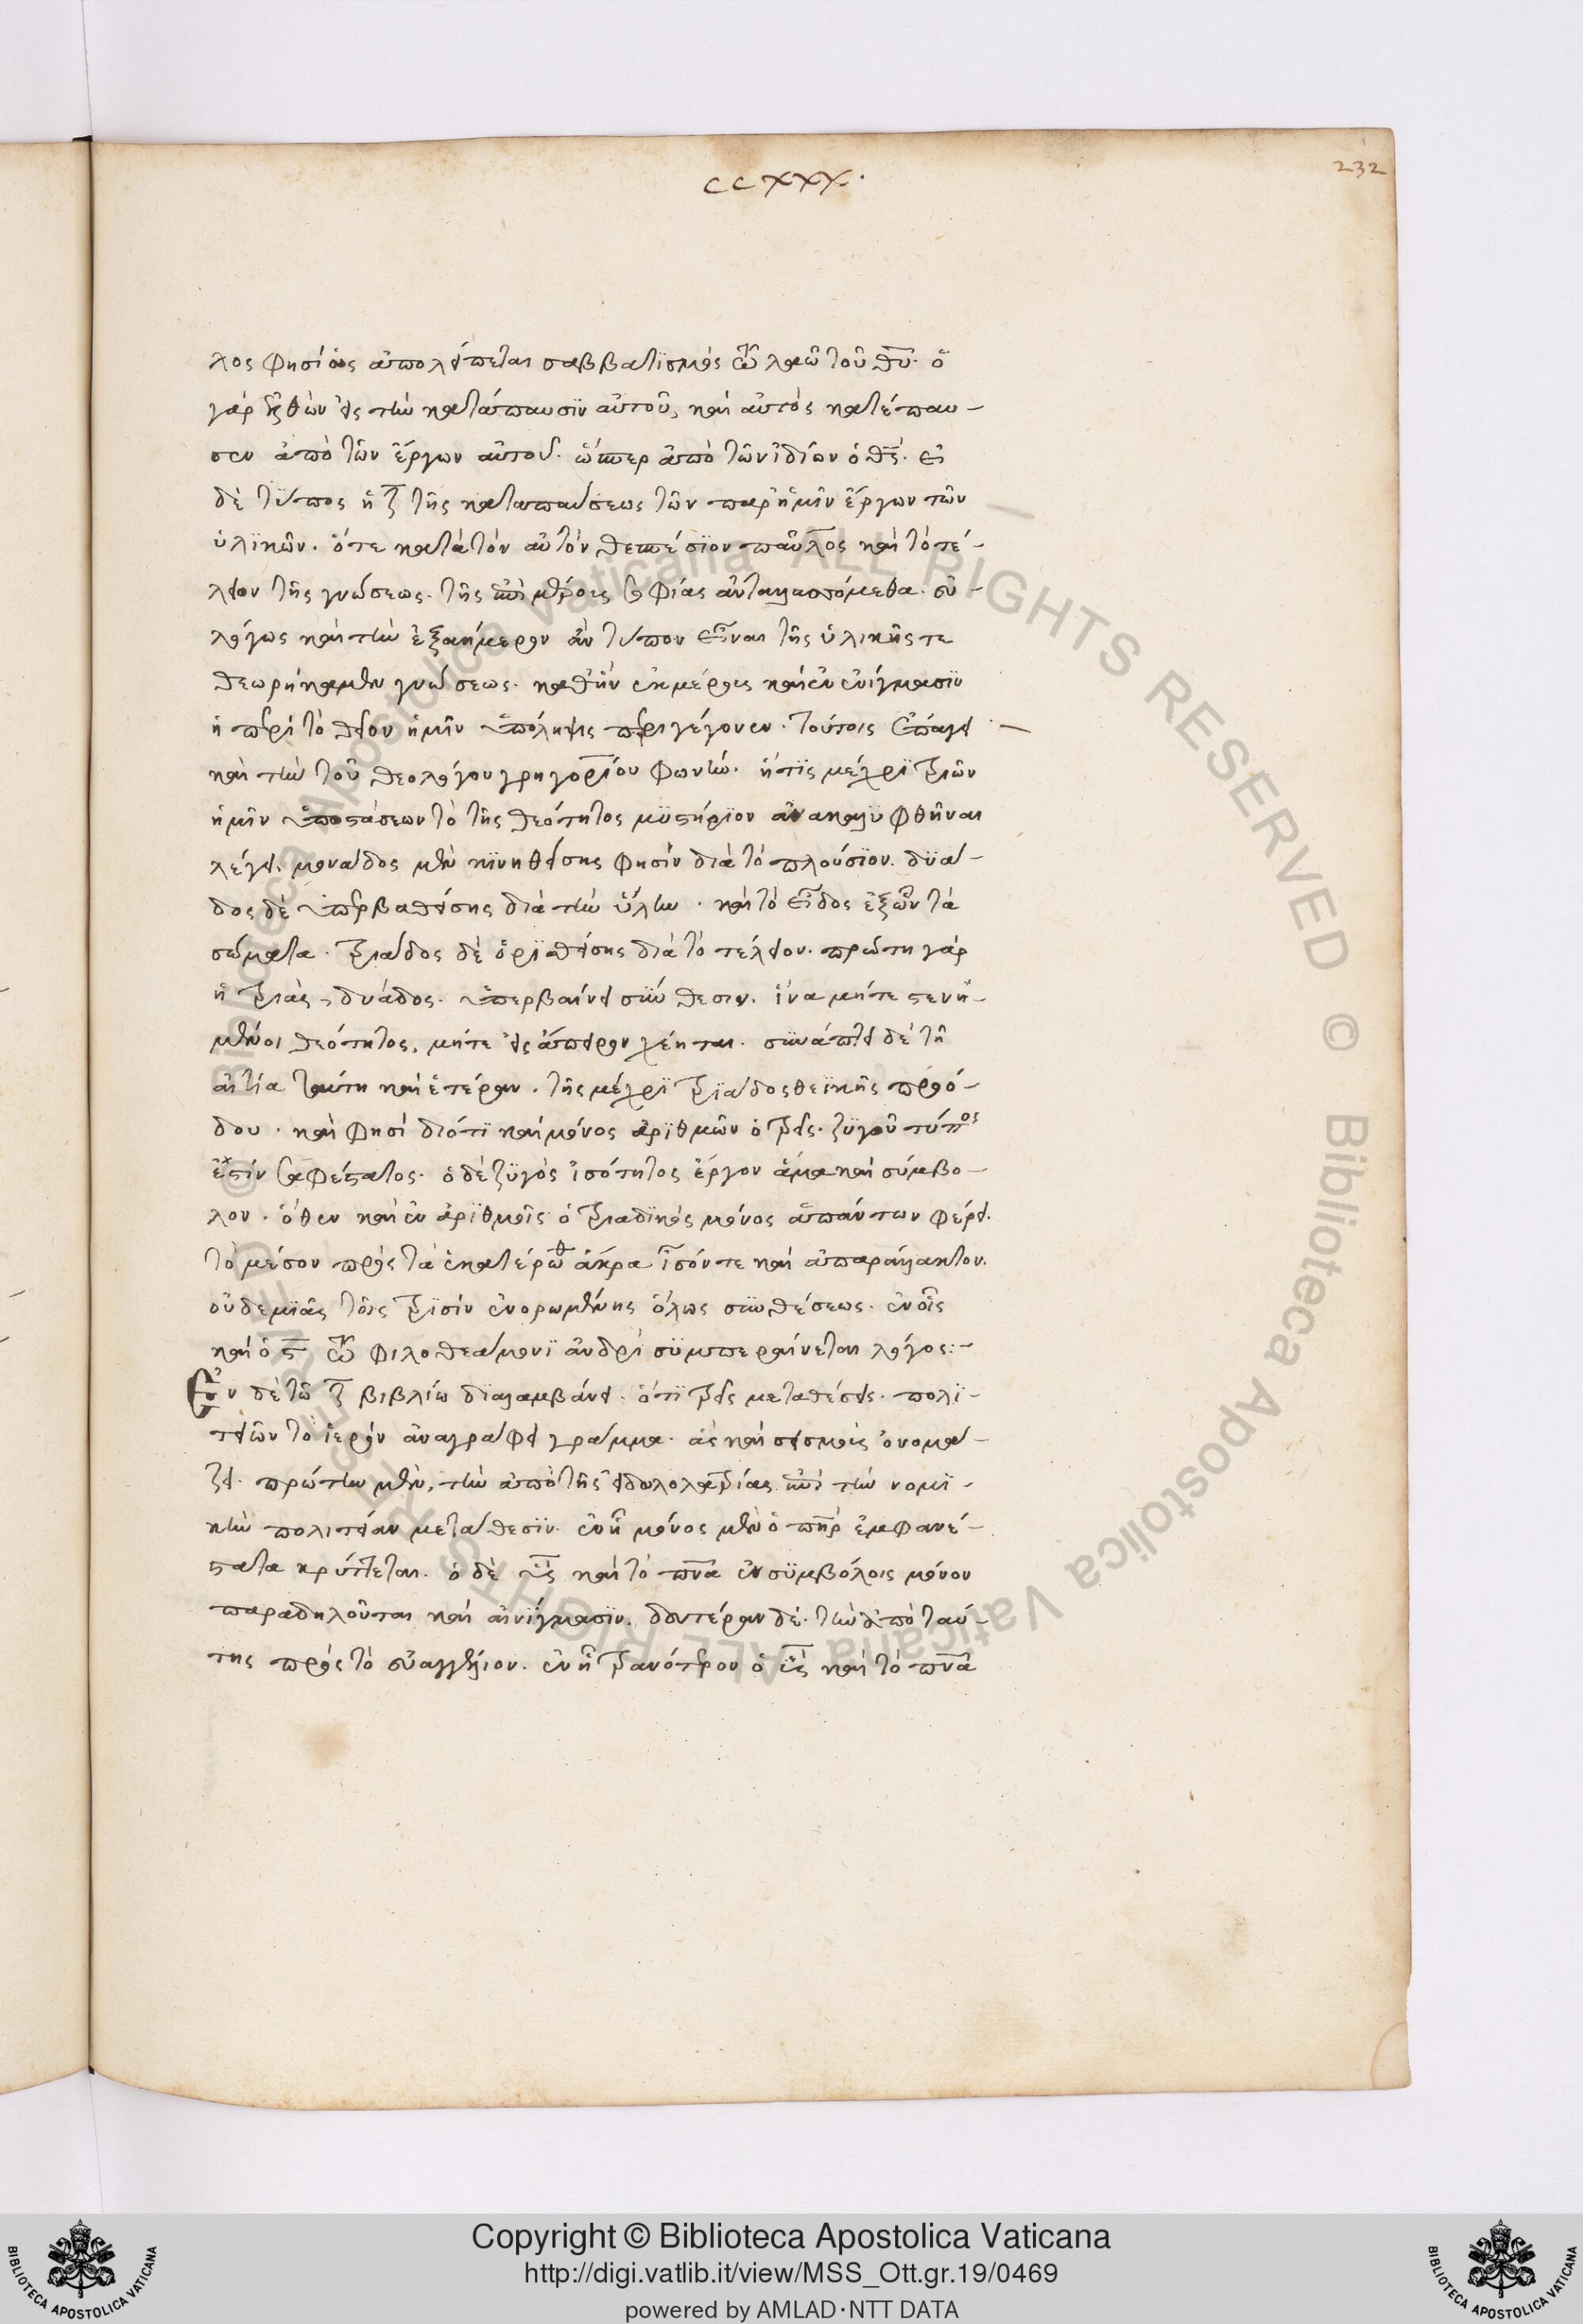 232
CCXXX.
λος φησίὁος ἀπολείπεται σαββατϊσμὸς τῶ λαῶ τοῦ θῦ· ὁ
γὰρ εἰσελθὼν εἰς τὴν κατάπαυσϊν αὐτοῦ, καὶ αὐτὸς κατέπαυ-
σεν ἀπὸ τῶν ἔργων αὐτοῦ· ὥσπερ ἀπὸ τῶν ἰδίων ὁ θς̄· εἰ
δὲ τύπος ἡ ζ̄ τῆς καταπαύσεως τῶν παρ' ἡμῖν ἔργων τῶν
ὑλϊκῶν· ὅτε κατὰ τὸν αὐτὸν θεσπέσϊον παῦλος καὶ τὸ τέ-
λειον τῆς γνώσεως· τῆς ἐπὶ μέρους σοφίας ἀνταλλασσόμεθα· εὐ-
λόγως καὶ τὴν ἑξαήμερον ἂν τύπον εἶναι τῆς ὑλικῆς τε
θεωρήκαμεν γνώσεως· καθ' ἣν ἐκ μέρους καὶ ἐν αἰνίγμασϊν
ἡ περὶ τὸ θεῖον ἡμῖν ὑπόληψις περιγέγονεν· τούτοις ἐπάγει
καὶ τὴν τοῦ θεολόγου γρηγορίου φωνήν· ἥτϊς μέχρϊ τριῶν
ἡμῖν ὑποστάσεων τὸ τῆς θεότητος μϋστήρϊον ἀνακαλϋφθῆναι
λέγει· μονάδος μὲν κϊνηθείσης φησὶν διὰ τὸ πλούσϊον· δϋά-
δος δὲ ὑπερβαθείσης διὰ τὴν ὕλην· καὶ τὸ εἶδος ἐξ ὧν τὰ
σώματα· τριάδος δὲ ὁρϊσθείσης διὰ τὸ τέλειον· πρώτη γὰρ
ἡ τριὰς, δυάδος· ὑπερβαίνει σύνθεσιν· ἵνα μήτε στενὴ-
μένοι θεότητος, μήτε εἰς ἄπειρον χέηται· συνάπτει δὲ τῆ
αἰτία ταύτη καὶ ἑτέραν· τῆς μέχρϊ τρϊάδος θεϊκῆς προό-
δου· καὶ φησὶ διότϊ καὶ μόνος ἀρϊθμῶν ὁ τρεῖς· ζϋγοῦ τύπος
ἐστὶν σαφέστατος· ὁ δὲ ζϋγὸς ἰσότητος ἔργον ἅμα καὶ σύμβο-
λον· ὅθεν καὶ ἐν ἀρϊθμοῖς ὁ τριαδϊκὸς μόνος ἁπάντων φέρει·
τὸ μέσον πρὸς τὰ ἑκατέρωθ ἄκρα ἶσόν τε καὶ ἀπαράλλακτον·
οὐδεμϊᾶς τοῖς τρϊσὶν ἐνορωμένης ὅλως συνθέσεως· ἐν οἷς
καὶ ὁ ς̄ τῶ φιλοθεάμονϊ ἀνδρὶ σϋμπεραίνεται λόγος:-
Ἐν δὲ τῶ ζ̄ βιβλίω δϊαλαμβάνει· ὅτϊ τρεῖς μεταθέσεις· πολϊ-
τειῶν τὸ ἱερὸν ἀναγράφει γράμμα· ἃς καὶ σεισμοὺς ὀνομά-
ζει· πρώτην μὲν, τὴν ἀπὸ τῆς εἰδωλολατρίας ἐπὶ τὴν νομϊ-
κὴν πολιτείαν μετάθεσϊν· ἐν ἧ μόνος μὲν ὁ πηρ̄ ἐμφανέ-
στατα κρύπτεται· ὁ δὲ υς̄ καὶ τὸ πνᾶ ἐν σϋμβόλοις μόνον
παραδηλοῦται καὶ αἰνίγμασϊν· δευτέραν δέ· τὴν ἀπὸ ταύ-
της πρὸς τὸ εὐαγγέλιον· ἐν ἧ τρανότερον ὁ υς̄ καὶ τὸ πνᾶ
© Biblioteca Apostolica Vaticana ALL RIGHTS RESERVED
Copyright © Biblioteca Apostolica Vaticana
http://digi.vatlib.it/view/MSS_Ott.gr.19/0469
powered by AMLAD·NTT DATA
BIBLIOTECA APOSTOLICA VATICANA
BIBLIOTECA APOSTOLICA VATICANA